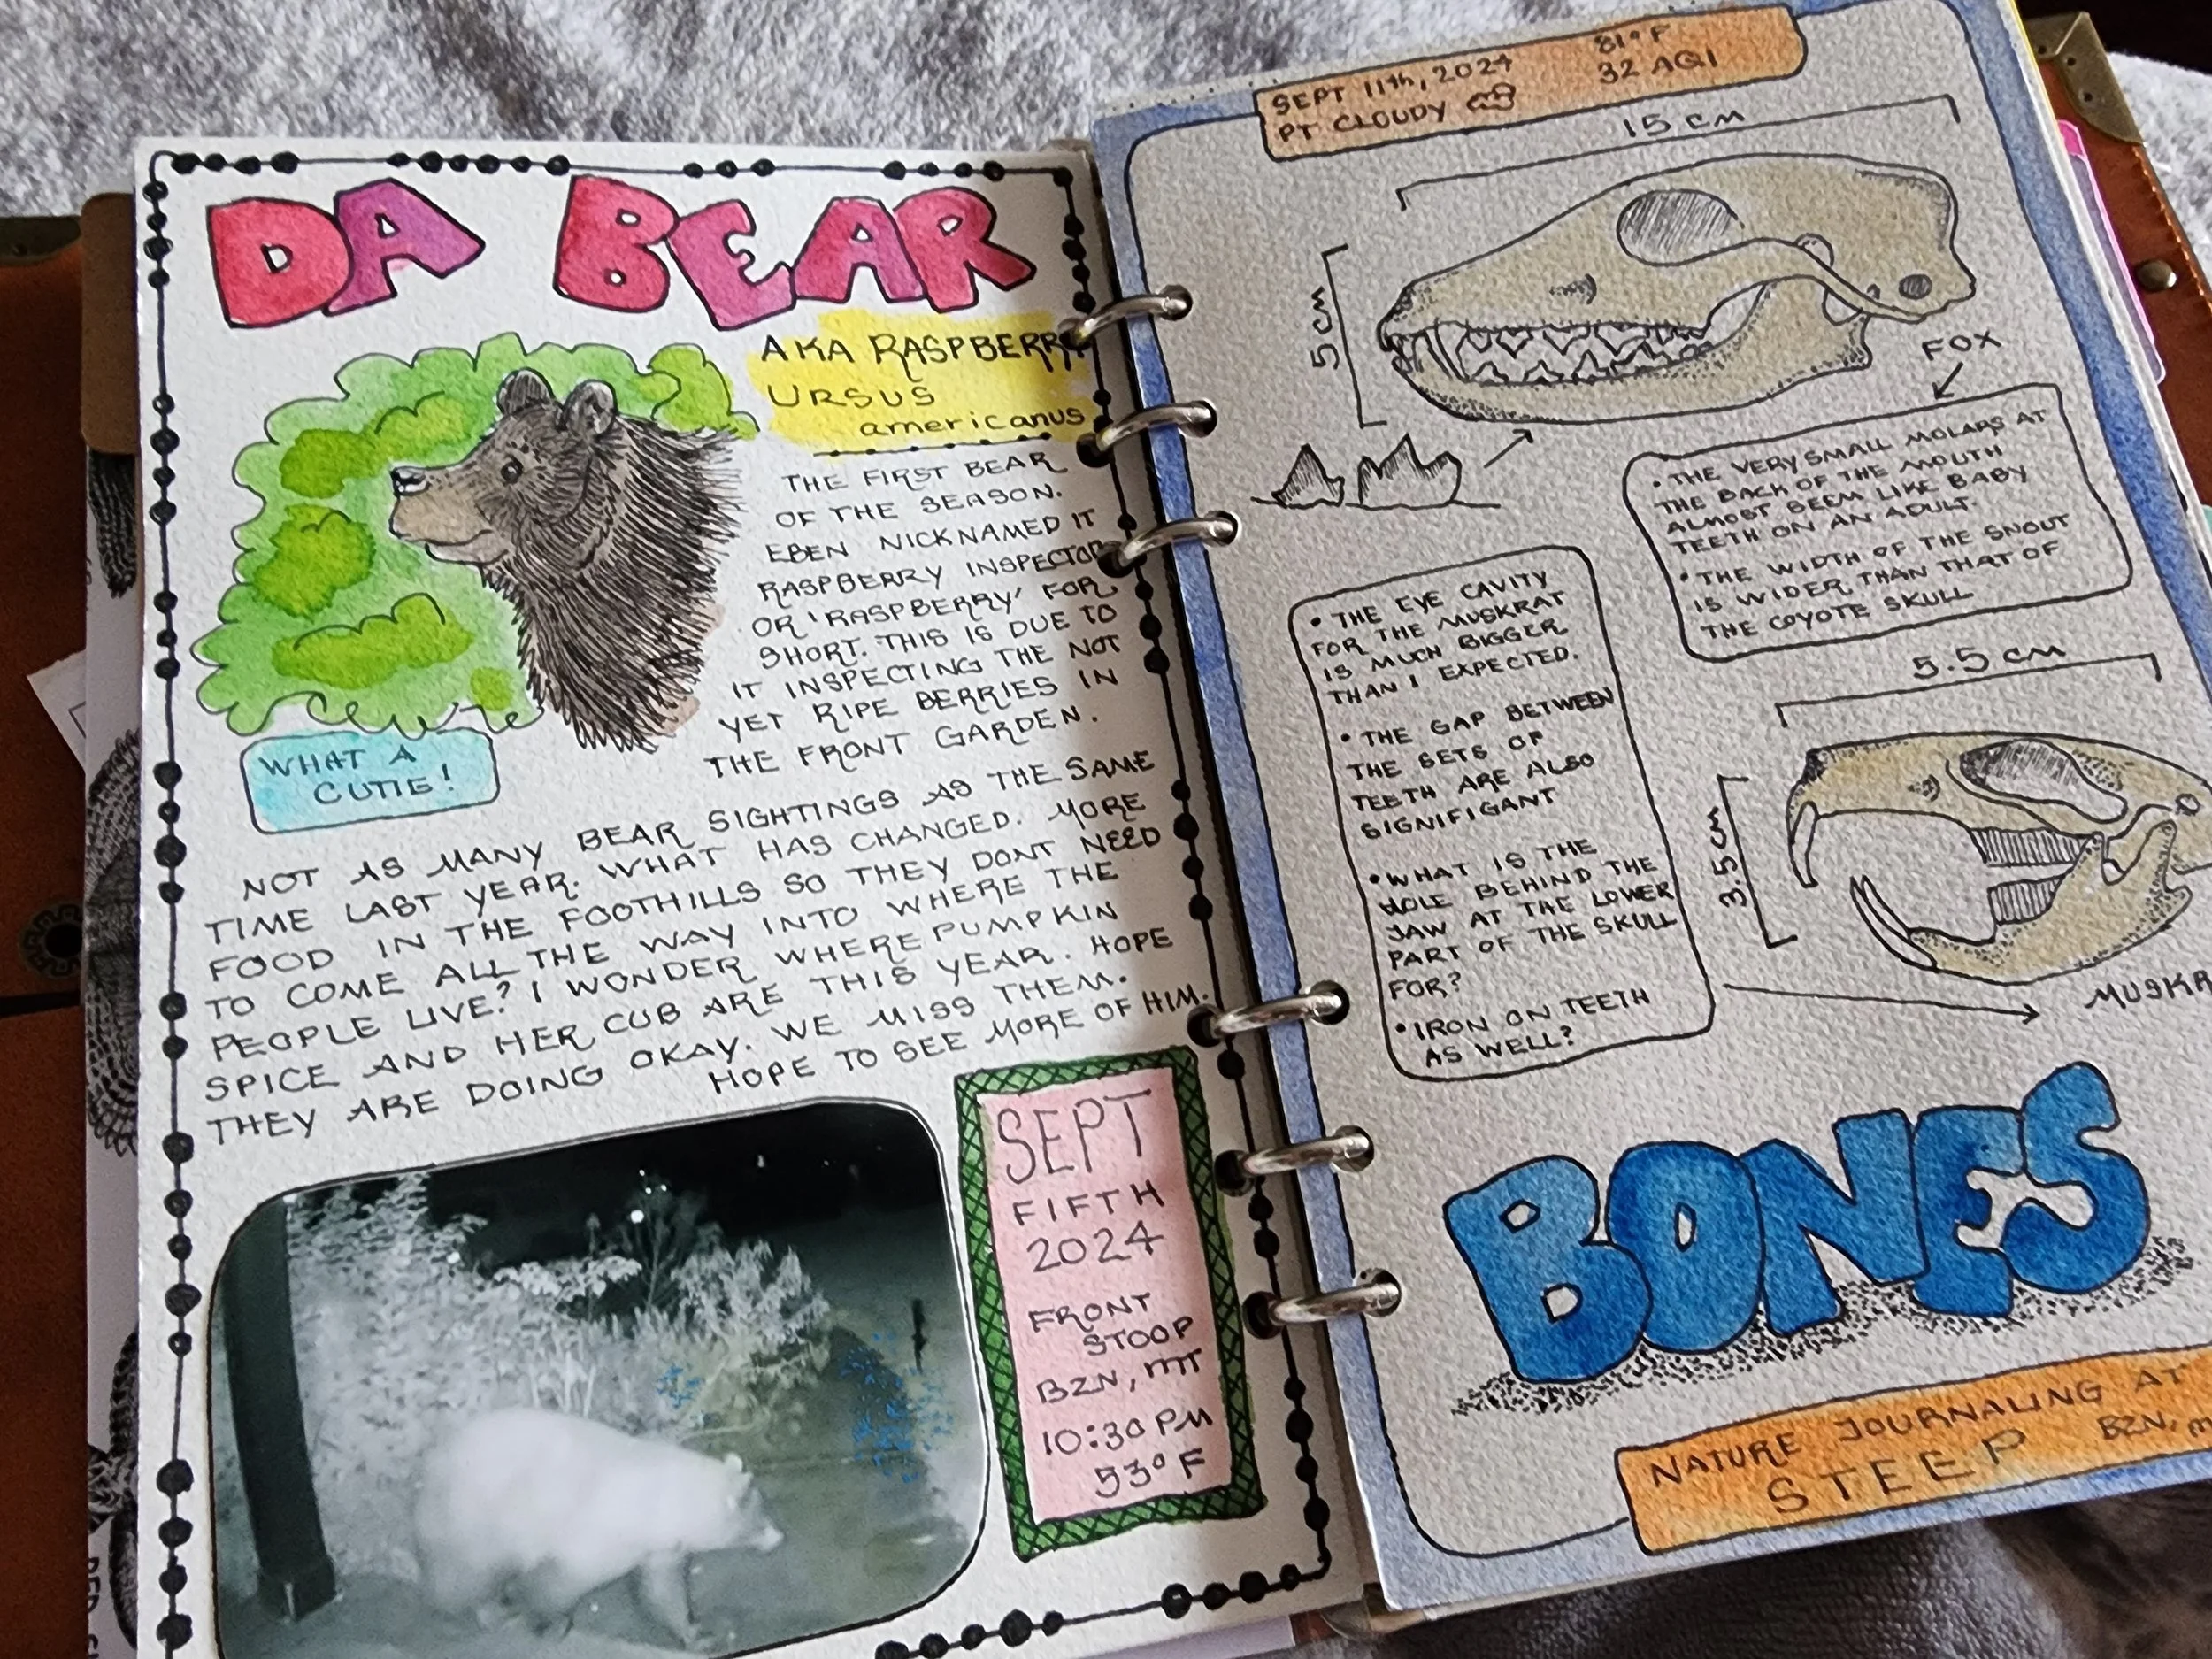 DA BEAR
AKA RASPBERRY
URSUS
americanus
THE FIRST BEAR
OF THE SEASON.
EBEN NICKNAMED IT
RASPBERRY INSPECTOR
OR 'RASPBERRY' FOR
SHORT. THIS IS DUE TO
IT INSPECTING THE NOT
YET RIPE BERRIES IN
THE FRONT GARDEN.
WHAT A
CUTIE!
NOT AS MANY BEAR SIGHTINGS AS THE SAME
TIME LAST YEAR. WHAT HAS CHANGED. MORE
FOOD IN THE FOOTHILLS SO THEY DONT NEED
TO COME ALL THE WAY INTO WHERE THE
PEOPLE LIVE? I WONDER WHERE PUMPKIN
SPICE AND HER CUB ARE THIS YEAR. HOPE
THEY ARE DOING OKAY. WE MISS THEM.
HOPE TO SEE MORE OF HIM.
SEPT
FIFTH
2024
FRONT
STOOP
BZN, MT
10:30 PM
53° F
SEPT 11th, 2024 81° F
PT CLOUDY 32 AQI
15 cm
5 cm
FOX
• THE VERY SMALL MOLARS AT
THE BACK OF THE MOUTH
ALMOST SEEM LIKE BABY
TEETH ON AN ADULT.
• THE WIDTH OF THE SNOUT
IS WIDER THAN THAT OF
THE COYOTE SKULL
• THE EYE CAVITY
FOR THE MUSKRAT
IS MUCH BIGGER
THAN I EXPECTED.
• THE GAP BETWEEN
THE SETS OF
TEETH ARE ALSO
SIGNIFIGANT
• WHAT IS THE
HOLE BEHIND THE
JAW AT THE LOWER
PART OF THE SKULL
FOR?
• IRON ON TEETH
AS WELL?
5.5 cm
3.5 cm
MUSKR
BONES
NATURE JOURNALING AT
STEEP BZN, M